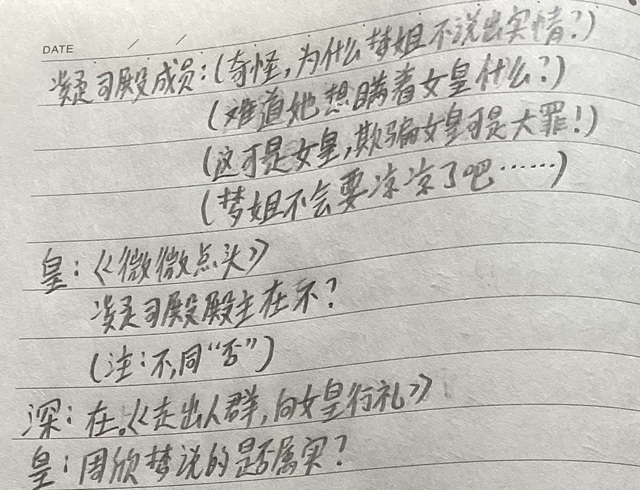 DATE / /
凝司殿成员:(奇怪,为什么梦姐不说出实情?)
(难道她想瞒着女皇什么?)
(这可是女皇,欺骗女皇可是大罪!)
(梦姐不会要凉凉了吧……)
皇:《微微点头》
凝司殿殿主在不?
(注:不,同“否”)
深:在。《走出人群,向女皇行礼》
皇:周欣梦说的是否属实?